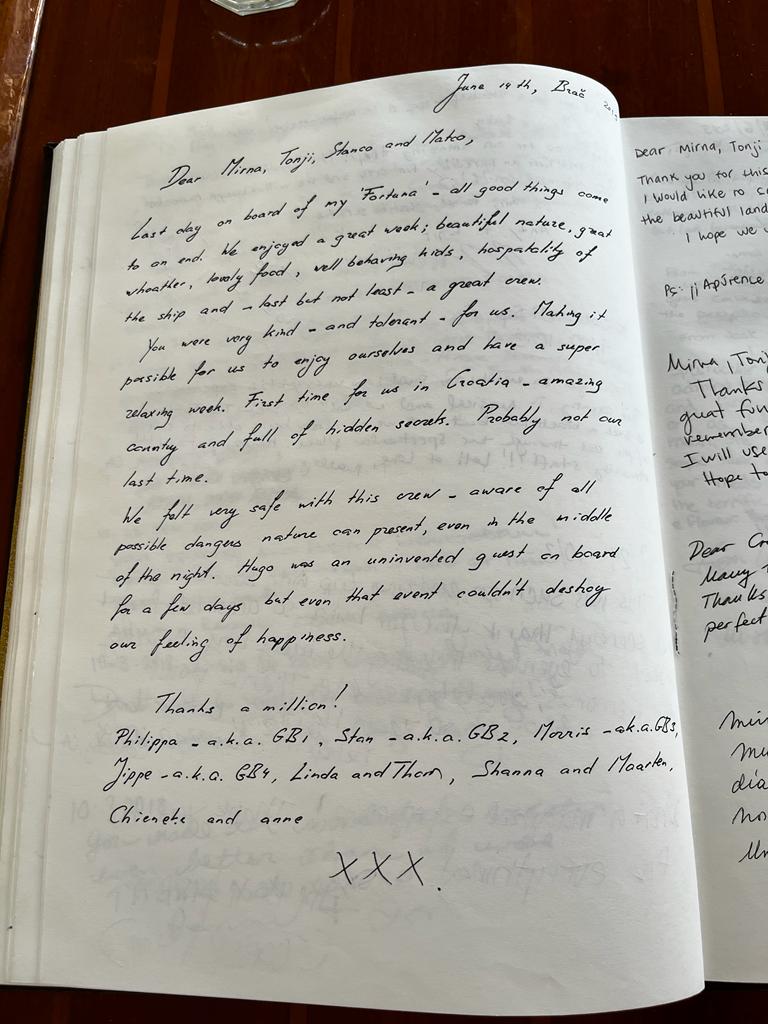 June 19th, Brač
Dear Mirna, Tonji, Stanco and Matco,
Last day on board of my 'Fortuna' - all good things come
to an end. We enjoyed a great week; beautiful nature, great
wheather, lovely food, well behaving kids, hospatality of
the ship and - last but not least - a great crew.
You were very kind - and tolerant - for us. Making it
possible for us to enjoy ourselves and have a super
relaxing week. First time for us in Croatia - amazing
country and full of hidden secrets. Probably not our
last time.
We felt very safe with this crew - aware of all
possible dangers nature can present, even in the middle
of the night. Hugo was an uninvented guest on board
for a few days but even that event couldn't destroy
our feeling of happiness.
Thanks a million!
Philippa - a.k.a. GB1, Stan - a.k.a. GB2, Morris - ak.a. GB3,
Jippe - a.k.a. GB4, Linda and Thom, Shanna and Maarten,
and anne
XXX.
Dear Mirna, Tonji
Thank you for this
I would like to
the beautiful land
I hope we
Ps:
Mirna, Tonj
Thanks
great fun
remember
I will use
Hope to
Dear Cr
Many
Thanks
perfect